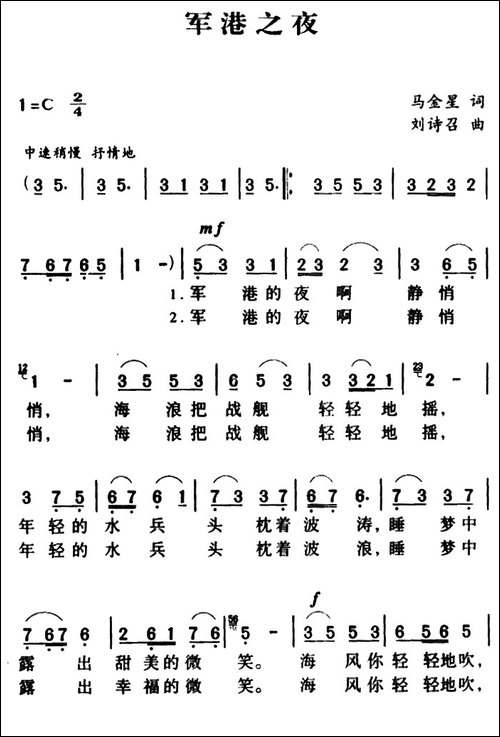 军港之夜
1=C 2/4
马金星 词
刘诗召 曲
中速稍慢 抒情地
(3 5. | 3 5. | 3 1 3 1 | 3 5. |: 3 5 5 3 | 3 2 3 2 |
mf
7 6 7 6 5 | 1 -) | 5 3 3 1 | 2 3 2 3 | 3 6 5 |
1.军 港 的 夜 啊 静 悄
2.军 港 的 夜 啊 静 悄
1 - | 3 5 5 3 | 6 5 3 | 3 3 2 1 | 2 - |
悄, 海 浪 把 战 舰 轻 轻 地 摇,
悄, 海 浪 把 战 舰 轻 轻 地 摇,
3 7 5 | 6 7 6 1 | 7 3 3 7 | 6 7 6. | 7 3 3 7 |
年 轻 的 水 兵 头 枕着 波 涛,睡 梦 中
年 轻 的 水 兵 头 枕着 波 浪,睡 梦 中
f
7 6 7 6 | 2 6 1 7 6 | 5 - | 3 5 5 3 | 6 5 6 5 |
露 出 甜 美 的 微 笑。 海 风 你 轻 轻地 吹,
露 出 幸 福 的 微 笑。 海 风 你 轻 轻地 吹,